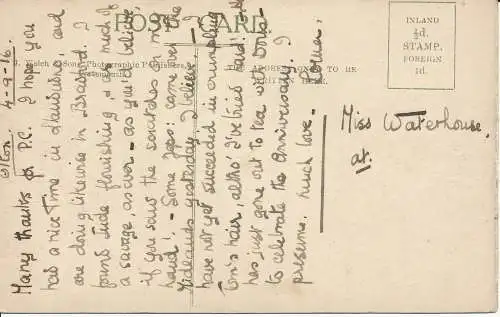 POST CARD
J. Welch & Sons, Photographic Publishers,
THE ADDRESS ONLY TO BE
WRITTEN HERE.
INLAND
½d.
STAMP.
FOREIGN
1d.
4-9-16.
Many thanks for P.C. I hope you
has a nice time in and
are doing likewise in I
found Jude flourishing & as much of
a savage, as ever - as you'd believe,
if you saw the scratches on my
hand! - Some Zepps: came over the
Midlands yesterday I believe. - I
have not yet succeeded in crumpling
Tom's hair, altho' I've tried hard!
has just gone out to tea with
to celebrate the Anniversary. I
presume. Much love.
Miss Waterhouse.
at.